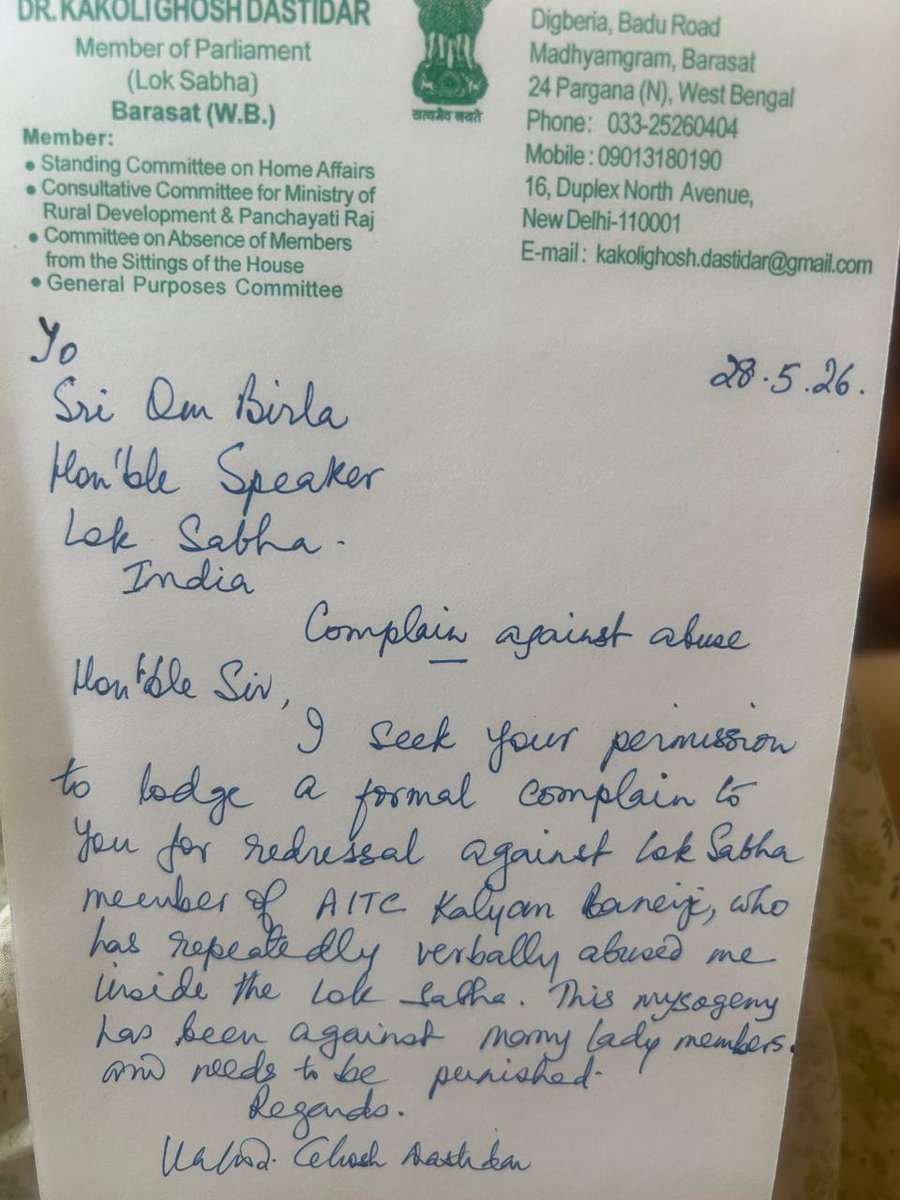 DR. KAKOLI GHOSH DASTIDAR
Member of Parliament
(Lok Sabha)
Barasat (W.B.)
Member:
• Standing Committee on Home Affairs
• Consultative Committee for Ministry of
Rural Development & Panchayati Raj
• Committee on Absence of Members
from the Sittings of the House
• General Purposes Committee
सत्यमेव जयते
Digberia, Badu Road
Madhyamgram, Barasat
24 Pargana (N), West Bengal
Phone: 033-25260404
Mobile : 09013180190
16, Duplex North Avenue,
New Delhi-110001
E-mail : kakolighosh.dastidar@gmail.com
To
28.5.26.
Sri Om Birla
Hon'ble Speaker
Lok Sabha.
India
Complain against abuse
Hon'ble Sir,
I seek your permission
to lodge a formal complain to
you for redressal against Lok Sabha
member of AITC Kalyan Banerji, who
has repeatedly verbally abused me
inside the Lok Sabha. This mysogeny
has been against many lady members.
and needs to be punished.
Regards.
Ghosh Dastidar